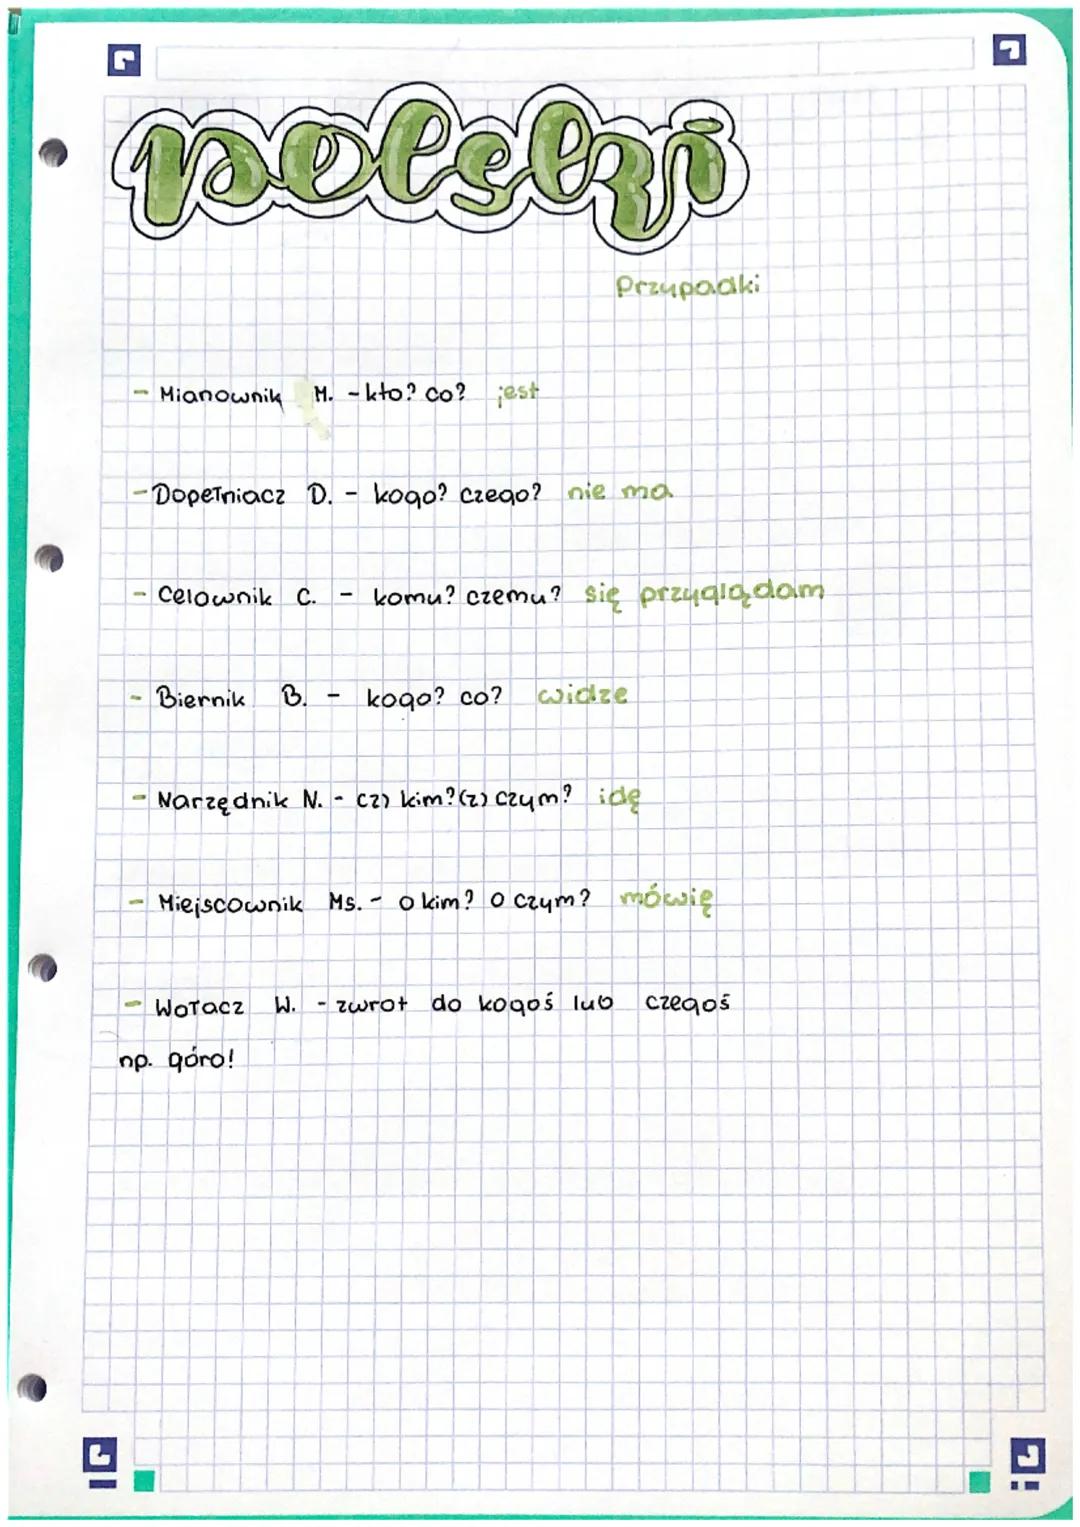 polski
Przypadki
- Mianownik M. - kto? co? jest
- Dopełniacz D. - kogo? czego? nie ma
- Celownik C. - komu? czemu? się przyglądam
- Biernik B. - kogo? co? widze
- Narzędnik N. - (z) kim? (z) czym? idę
- Miejscownik Ms. - o kim? o czym? mówię
- Wołacz W. - zwrot do kogoś lub czegoś
np. góro!